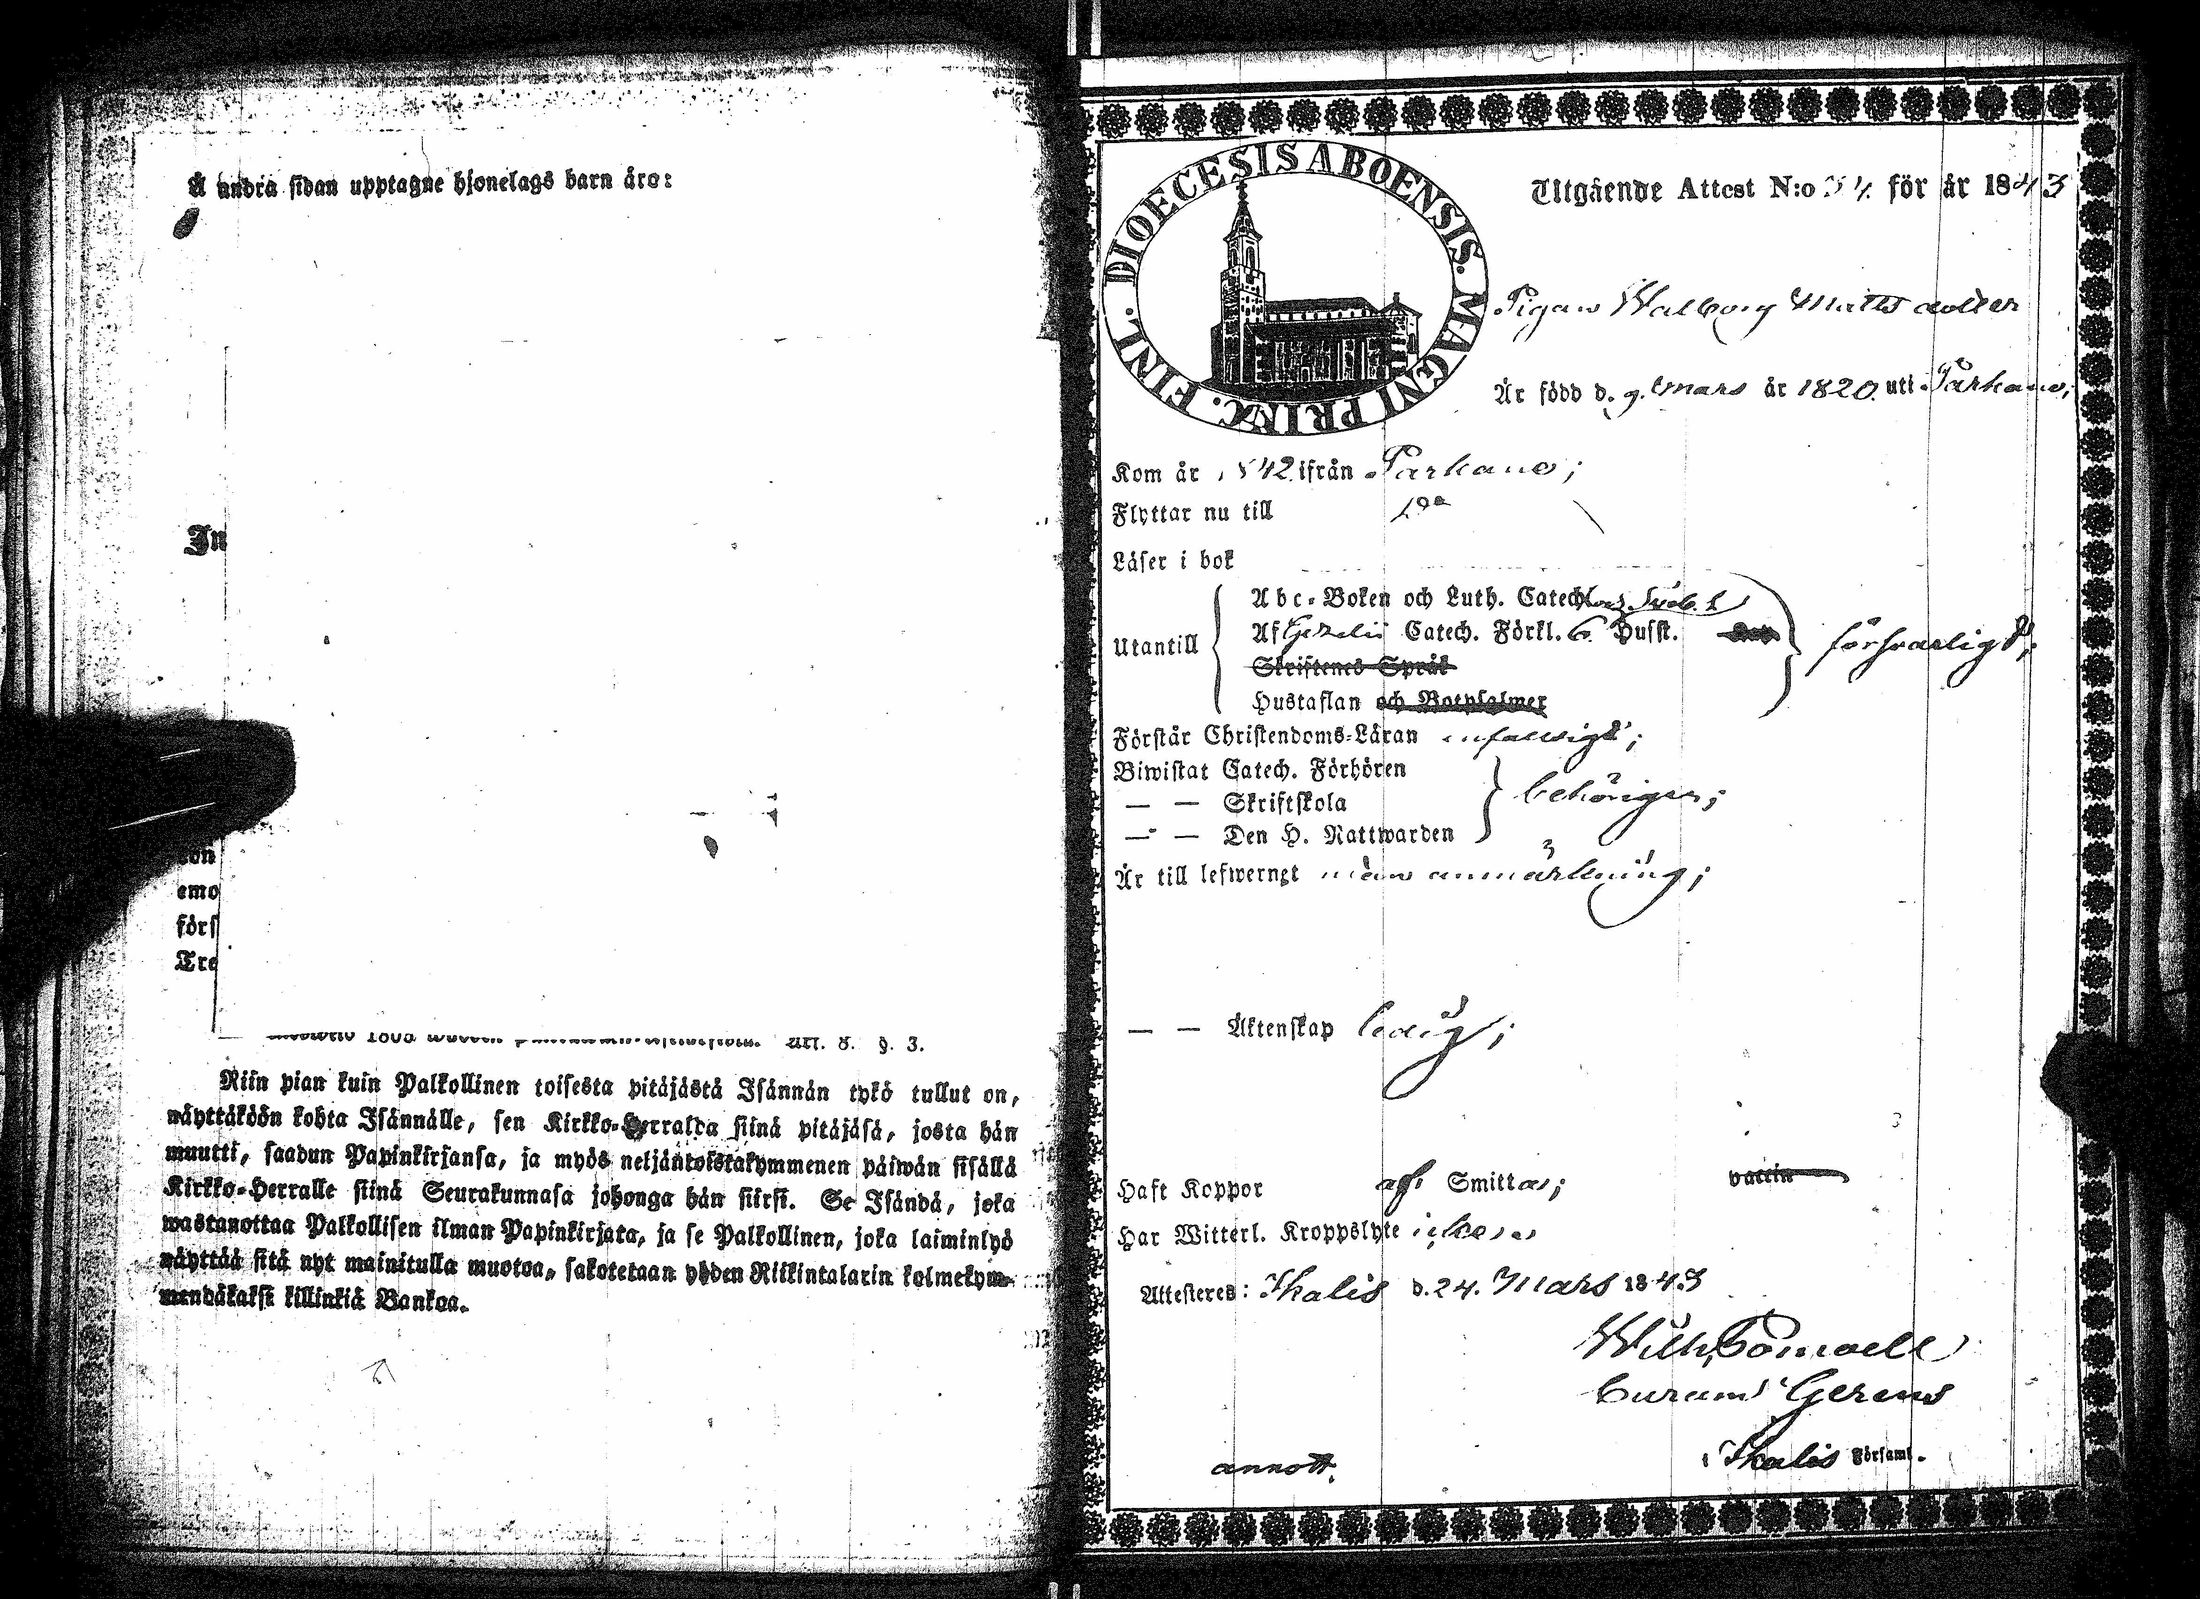 Å andra sidan upptagne hjonelags barn äro:
In
emo
förs
Tre
Art. 8. §. 3.
Niin pian kuin Palkollinen toisesta pitäjästä Isännän tykö tullut on,
näyttäköön kohta Isännälle, sen Kirkko-Herralda siinä pitäjäsä, josta hän
muutti, saadun Papinkirjansa, ja myös neljäntoistakymmenen päiwän sisällä
Kirkko-Herralle siinä Seurakunnasa johonga hän siirsi. Se Isändä, joka
wastanottaa Palkollisen ilman Papinkirjata, ja se Palkollinen, joka laiminlyö
näyttää sitä nyt mainitulla muotoa, sakotetaan yhden Riikintalarin kolmekym-
mendäkaksi killinkiä Bankoa.
DIOECESIS ABOENSIS. MAGNI PRINC. FINL.
Utgående Attest N:o 34. för år 1843
Pigan Walborg Mattsdotter
Är född d. 9. Mars år 1820. uti Parkano;
Kom år 1842. ifrån Parkano;
Flyttar nu till
Läser i bok
Utantill
Abc-Boken och Luth. Catech. Symb.
Af Gezelii Catech. Förkl. Husst.
Skriftenes Språk
Hustaflan och Botpsalmer
försvarligt;
Förstår Christendoms-Läran enfaldigt;
Biwistat Catech. Förhören
— — Skriftskola
— — Den H. Nattwarden
behörigen;
Är till lefwernet utan anmärkning;
— — Äktenskap ledig;
Haft Koppor af Smittan; vaccin
Har Witterl. Kroppslyte icke
Attesteres: Ikalis d. 24. Mars 1843
Wilh.
Curam Gerens
i Ikalis Församl.
annott.